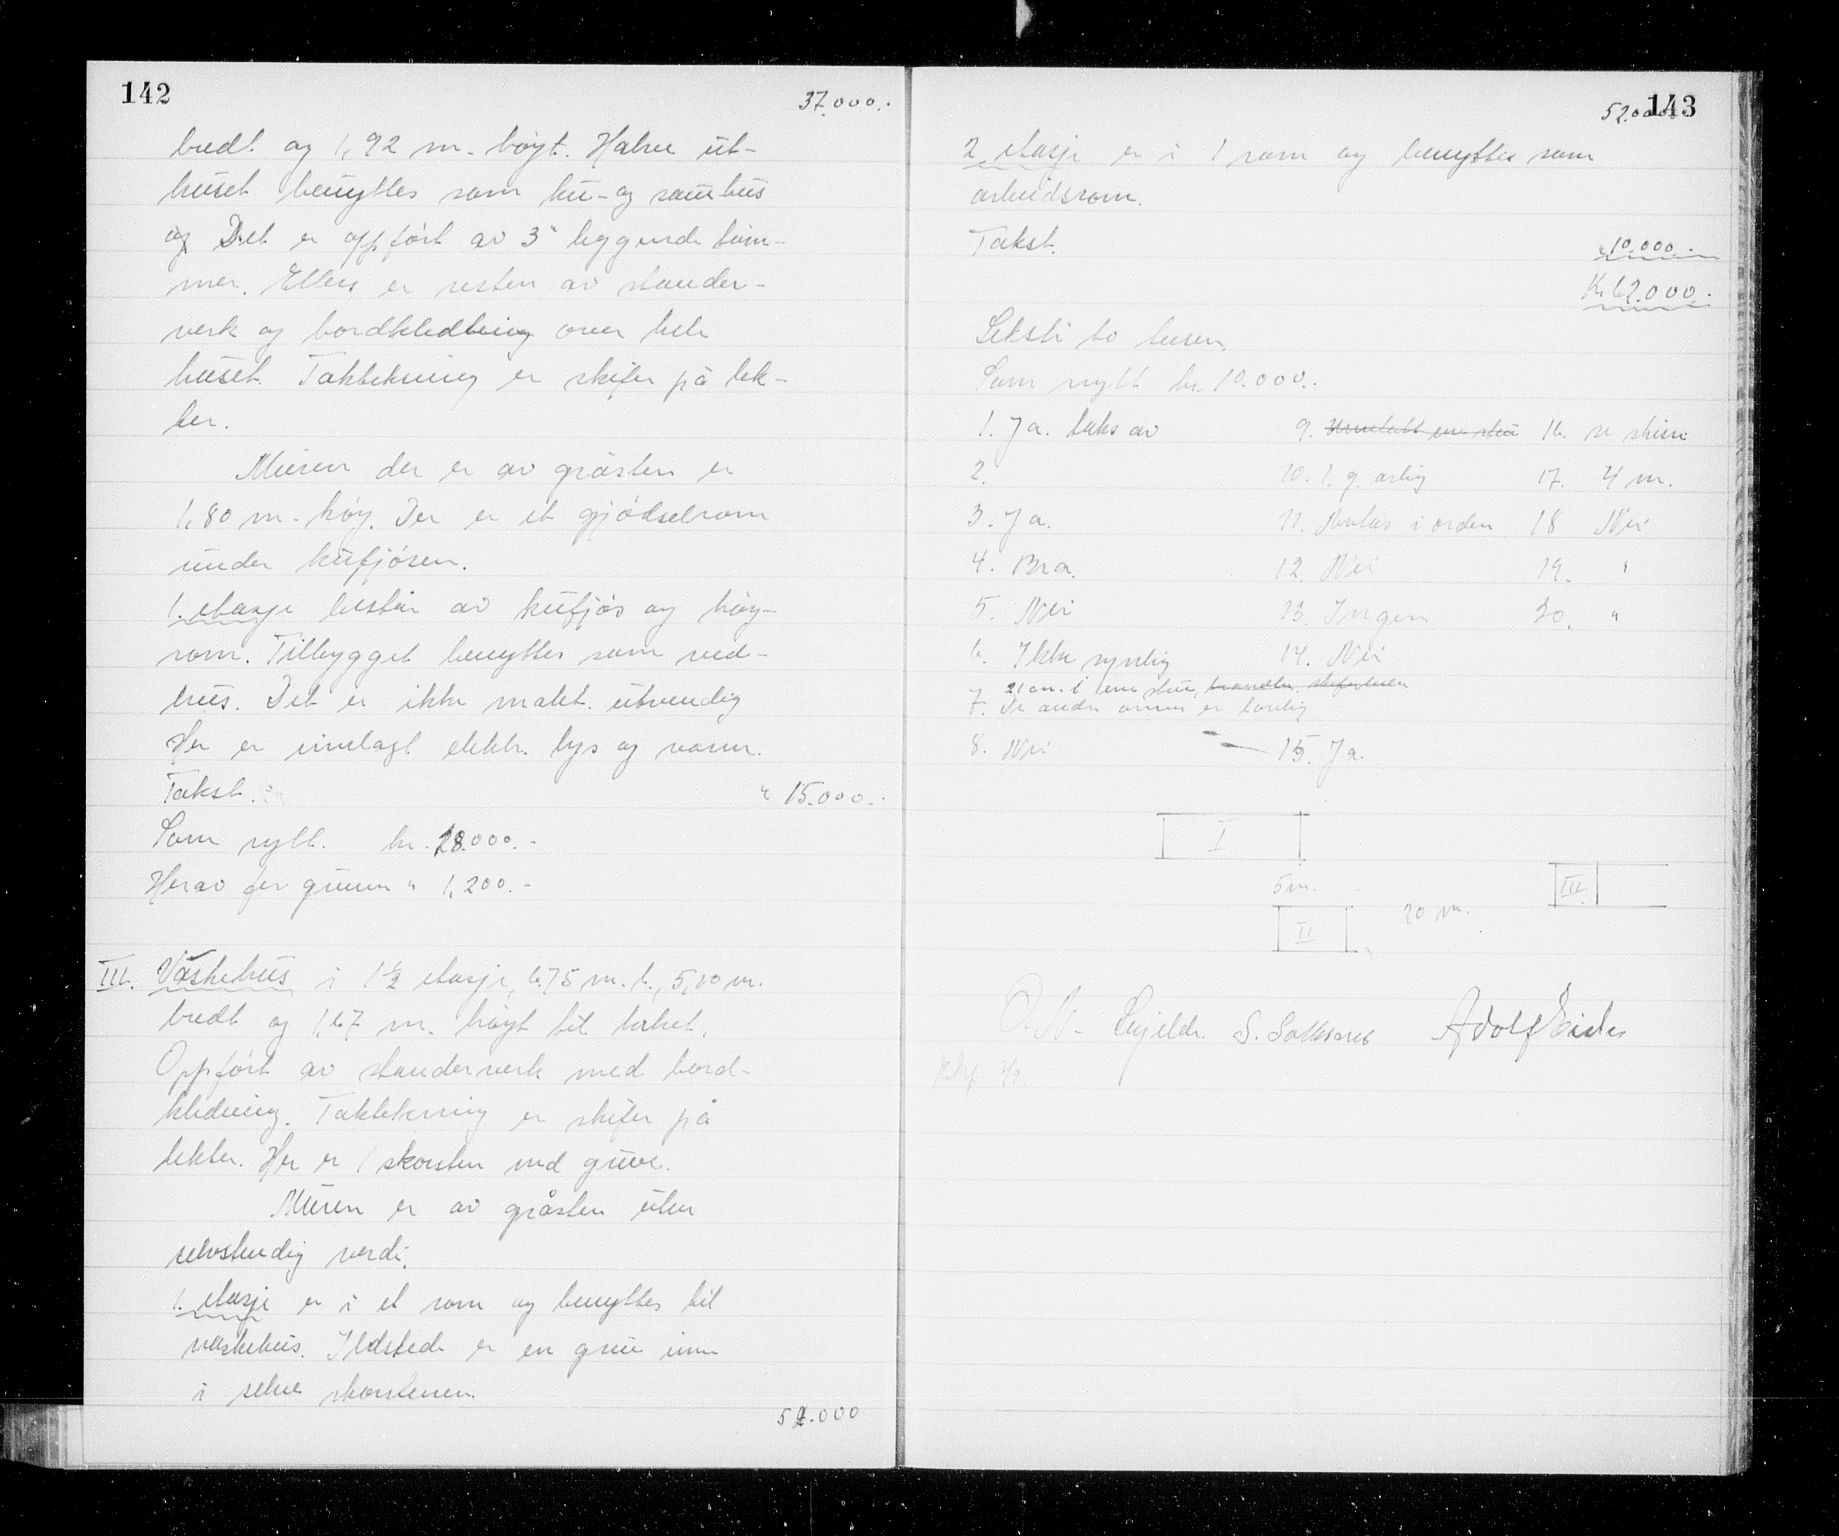 142
37.000.-
bredt og 1,92 m. høyt. Halve ut-
huset benyttes som ku- og sauehus
og Det er oppført av 3" liggende tøm-
mer. Ellers er resten av stander-
verk og bordkledning over hele
huset. Taktekning er skifer på lek-
ter.
Muren der er av gråsten er
1,80 m. høy. Der er et gjødselrom
under kufjøsen.
1. etasje består av kufjøs og høy-
rom. Tilbygget benyttes som ved-
hus. Det er ikke malt utvendig
Her er innlagt elektr. lys og vann.
Takst. " 15.000.-
Som nytt. kr. 28.000.-
Herav for grunn " 1,200.-
III. Vaskehus i 1½ etasje, 6.75 m. l., 5,00 m.
bredt og 1,67 m. høyt til taket.
Oppført av standerverk med bord-
kledning. Taktekning er skifer på
lekter. Her er 1 skorsten med grue.
Muren er av gråsten uten
selvstendig verdi.
1. etasje er i et rom og benyttes til
vaskehus. Ildstede er en grue inne
i selve skorstenen.
52.000
143
52.000
2 etasje er i 1 rom og benyttes som
arbeidsrom.
Takst. " 10.000.-
Kr 62.000.-
Seksti to tusen.
Som nytt kr 10.000.-
1. Ja. taks av 9. 16. se skisse
2. 10. 1. g. årlig 17. 4 m.
3. Ja. 11. Antas i orden 18 Nei
4. Bra. 12. Nei 19. "
5. Nei 13. Ingen 20. "
6. Ikke synlig 14. Nei
21 cm. i
7. De andre er lovlig
8. Nei 15. Ja.
I
5 m.
III
20 m.
II
S. Adolf